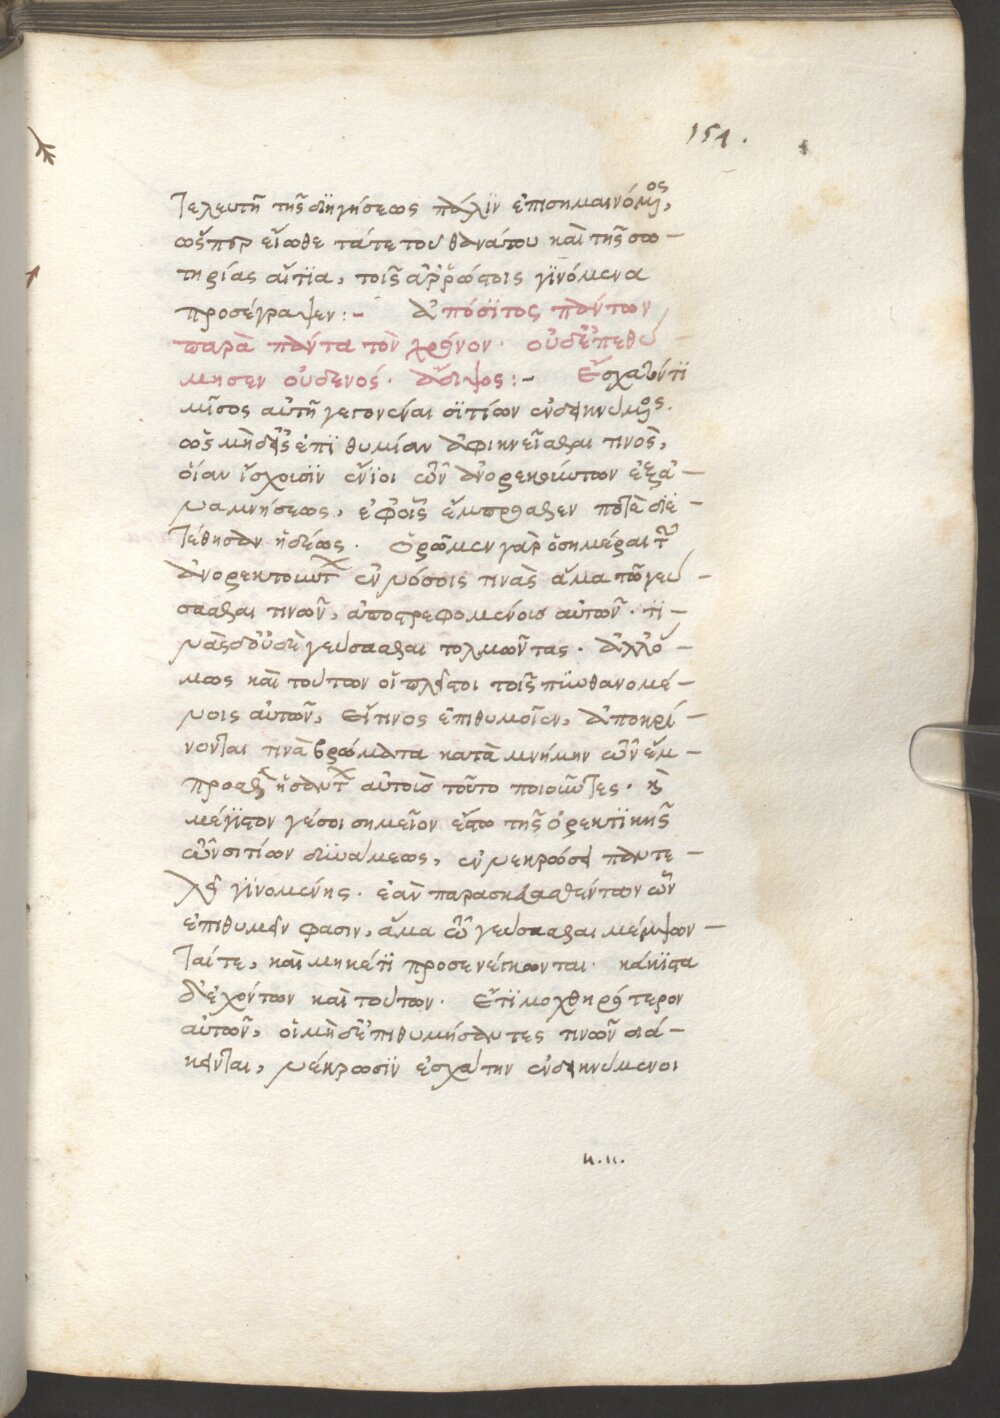 154.
τελευτῆ τῆς διηγήσεως πάλϊν ἐπισημαινόμενος,
ὥσπερ εἴωθε τά τε τοῦ θανάτου καὶ τῆς σω –
τηρίας αἴτϊα, τοῖς ἀῤῥώστοις γϊνόμενα
προσέγραψεν :– Ἀπόσϊτος πάντων
παρὰ πάντα τὸν χρόνον. οὐδ' ἐπεθύ –
μησεν οὐδενός. ἄδιψος :– Ἔσχατόν τϊ
μῖσος αὐτῆ γεγονέναι σϊτίων ἐνδεικνύμενος.
ὡς μηδ' εἰς ἐπϊθυμίαν ἀφικνεῖσθαι τινος,
οἵαν ἴσχουσϊν ἔνϊοι τῶν ἀνορεκτούντων ἐξ ἀ –
ναμνήσεως, ἐφ' οἷς ἔμπροσθεν ποτὲ διε –
τέθησαν ἡδέως. Ὁρῶμεν γὰρ ὁσημέραι τῶν
ἀνορεκτούντων ἐν νόσοις τινὰς ἅμα τῶ γεύ –
σασθαι τινῶν, ἀποστρεφομένοις αὐτῶν. τϊ –
νὰς δ' οὐδὲ γεύσασθαι τολμῶντας. ἀλλ' ὅ –
μως καὶ τούτων οἱ πλεῖστοι τοῖς πυνθανομέ –
νοις αὐτῶν, εἴ τινος ἐπιθυμοῖεν, ἀποκρί –
νονται τινὰ βρώματα κατὰ μνήμην τῶν ἔμ –
προσθεν ἡσάντων αὐτοῖς τοῦτο ποιοῦντες. καὶ
μέγϊστον γέ σοι σημεῖον ἔστω τῆς ὀρεκτϊκῆς
τῶν σιτίων δυνάμεως, ἐν νεκρώσει παντε –
λεῖ γϊνομένης. ἐὰν παρασκευασθέντων ὧν
ἐπιθυμεῖν φασιν, ἅμα τῶ γεύσασθαι μέμψων –
ταί τε, καὶ μηκέτϊ προσενέγκωνται. κάκϊστα
δ' ἐχόντων καὶ τούτων. Ἔτϊ μοχθηρότερον
αὐτῶν, οἱ μηδ' ἐπιθυμήσαντες τινῶν διά –
κεινται, νέκρωσϊν ἐσχάτην ἐνδεικνύμενοι
κ.κ.